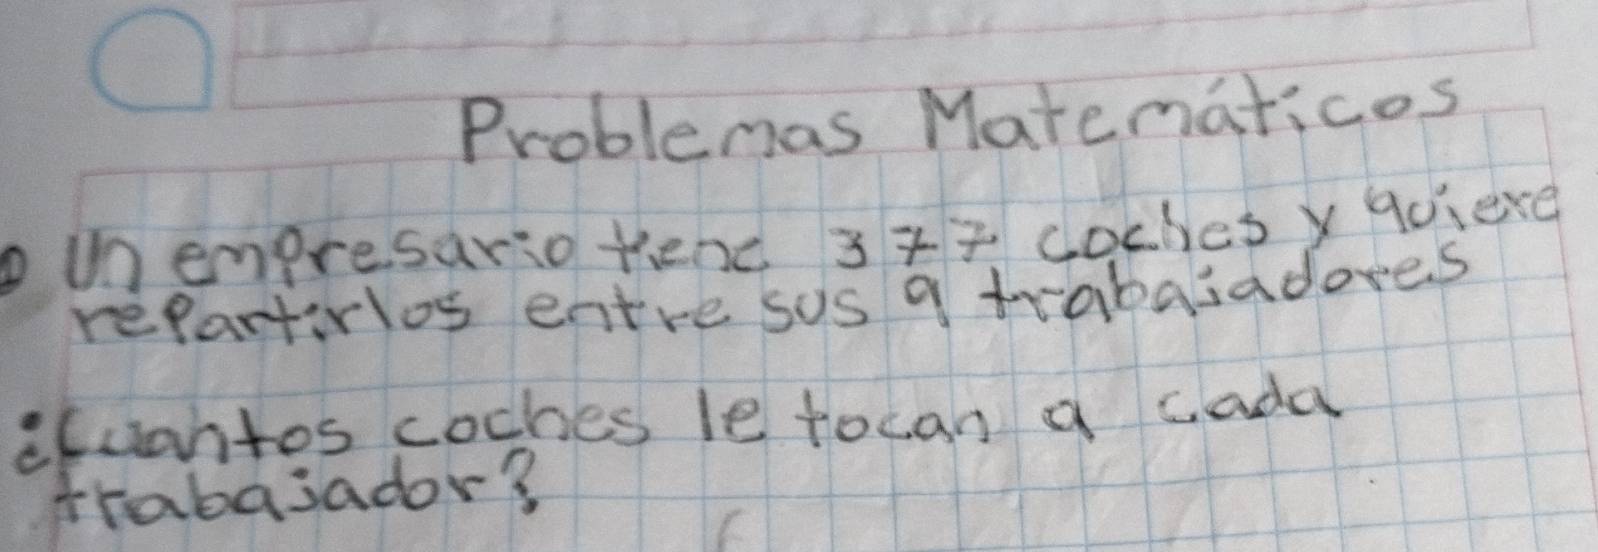 Problemas Matemáticos
Un empresario tiene 377 coches y quiere
repartirlos entre sus 9 trabajadores
¿Cuantos coches le tocan a cada
trabajador?